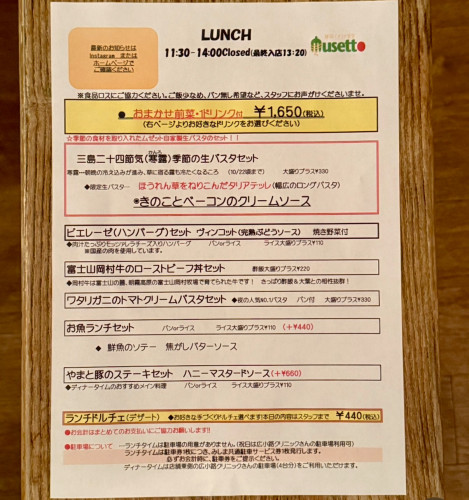 LUNCH
11:30-14:00Closed(最終入店13:20)
最新のお知らせは
Instagram または
ホームページで
ご確認ください
usetto
※食品ロスにご協力ください。ご飯少なめ、パン無し希望など、スタッフにお声がけくださいませ。
● おまかせ前菜・1ドリンク付 ¥1,650(税込)
(右ページよりお好きなドリンクをお選びください)
☆季節の食材を取り入れたムゼット自家製生パスタのセット!!
三島二十四節気(寒露)季節の生パスタセット
かんろ
寒露…朝晩の冷え込みが進み、草に宿る露も冷たくなるころ (10/22頃まで) 大盛りプラス¥330
◆限定生パスター ほうれん草をねりこんだタリアテッレ(幅広のロングパスタ)
※きのことベーコンのクリームソース
ピエレーゼ(ハンバーグ)セット ヴィンコット(完熟ぶどうソース) 焼き野菜付
◆肉汁たっぷりモッツァレラチーズ入りハンバーグ パンorライス ライス大盛りプラス¥110
※国産の肉を使用しています。
富士山岡村牛のローストビーフ丼セット 酢飯大盛りプラス¥220
◆岡村牛は富士山の麓、朝霧高原の富士山岡村牧場で育てられた牛です! さっぱり酢飯&大葉との相性抜群!
ワタリガニのトマトクリームパスタセット ◆夜の人気NO.1パスタ パン付 大盛りプラス¥330
お魚ランチセット パンorライス ライス大盛りプラス¥110 (+¥440)
◆ 鮮魚のソテー 焦がしバターソース
やまと豚のステーキセット ハニーマスタードソース(+¥660)
◆ディナータイムのおすすめメイン料理 パンorライス ライス大盛りプラス¥110
ランチドルチェ(デザート) ◆お好きな手づくりドルチェ選べます!本日の内容はスタッフまで ¥440(税込)
●お会計はまとめてのお支払いにご協力お願いします!!
●駐車場について …ランチタイムは駐車場の用意がありません。(祝日は広小路クリニックさんの駐車場利用可)
ランチタイムは駐車券1枚につき、みしま共通駐車サービス券1枚発行します。
必ずお会計時に、駐車券をご提示ください。
ディナータイムは店舗東側の広小路クリニックさんの駐車場(4台分)をご利用いただけます。